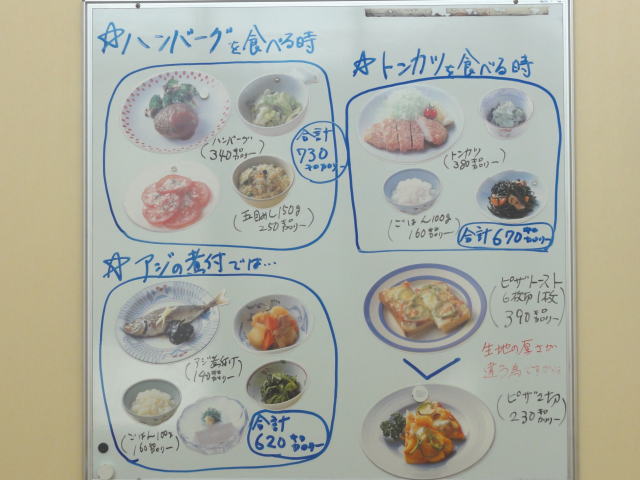 ☆ハンバーグを食べる時
ハンバーグ
(340キロカロリー)
合計
730
キロカロリー
五目めし150g
(250キロカロリー)
☆トンカツを食べる時
トンカツ
(380キロカロリー)
ごはん100g
(160キロカロリー)
合計670キロカロリー
☆アジの煮付では…
アジ煮付け
(140キロカロリー)
ごはん100g
(160キロカロリー)
合計
620キロカロリー
ピザトースト
6枚切1枚
(390キロカロリー)
生地の厚さが
違う為ですから
ピザ2切
(230キロカロリー)